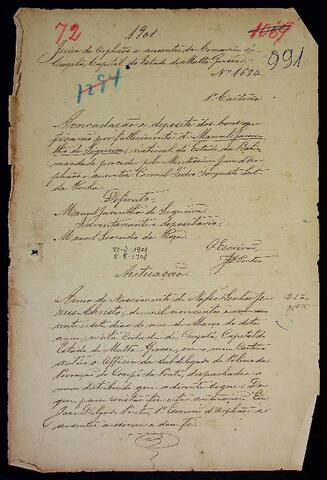 72
1901
1069
991
Juizo de Orphãos e ausentes da Comarca de
Cuyabá, Capital do Estado de Matto Grosso
Nº 1684
1184
1º Cartorio
Arrecadação e deposito dos bens que
ficarão por fallecimento de Manoel
de Siqueira, natural do Estado da Bahia
mandado proceder pelo Meritissimo Juiz de Or-
phãos e ausentes Coronel Pedro
da Rocha
Defunto
Manoel de Siqueira
Inventariante e depositario
Manoel Leocadio da Rosa
27-3-1901
5-8-1901
O Escrivão
Autuação
Anno do Nascimento de Nosso Senhor Je-
zus Christo, de mil novecentos e um aos
vinte e sete dias do mez de Março do dito
anno, nesta Cidade de Cuyabá Capital do
Estado de Matto Grosso, em meu Cartorio
autuo o Officio do Subdelegado de Policia da
Povoação do despachado e
a mim distribuido que adiante segue. Do
que, para constar fiz esta autuação. Eu
José Porto, 1º Escrivão d'Orphãos e
ausentes a escrevi e dou fé.